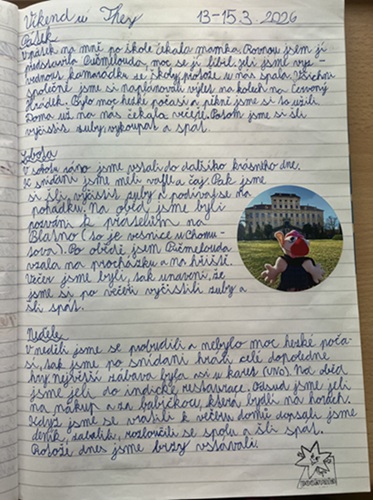 Víkend u They 13-15.3.2026
Pátek
V pátek na mně po škole čekala mamka. Rovnou jsem jí
představila Všémělouda, moc se jí líbil. Jeli jsme vyz-
vednout kamarádku ze školy protože u nás spala. Všichni
společně jsme si naplánovali výlet na kolech na Červený
Hrádek. Bylo moc hezké počasí a pěkně jsme si to užili.
Doma už na nás čekala večeře. Potom jsme si šli
vyčistit zuby, vykoupat a spat.
Sobota
V sobotu ráno jsme vstali do dalšího krásného dne.
K snídani jsme měli vafle a čaj. Pak jsme
si šli vyčistit zuby a podívat se na
pohádku. Na oběd jsme byli
pozváni k přátelům na
Blatno (to je vesnice u Chomu-
tova). Po obědě jsem
vzala na procházku a na hřiště.
Večer jsme byli tak unavení, že
jsme si po večeři vyčistili zuby a
šli spat.
Neděle
V neděli jsme se probudili a nebylo moc hezké poča-
sí, tak jsme po snídani hráli celé dopoledne
hry největší zábava byla asi u karet (UNO). Na oběd
jsme jeli do indické restaurace. Odsud jsme jeli
na nákup a za babičkou, která bydlí na horách.
Když jsme se vrátili k večeru domů dopsali jsme
deník, zabalili, rozloučili se spolu a šli spat.
Protože dnes jsme brzy vstávali.